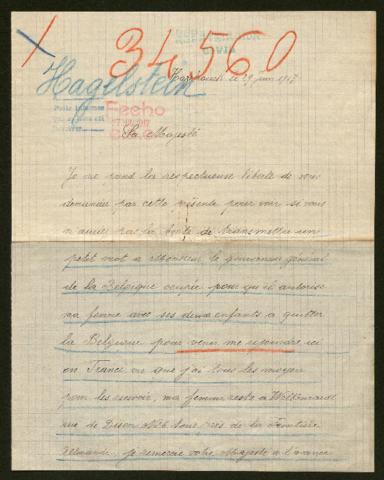 34,560
Hagelstein
le 29 juin 1917
Fecho
Sa Majesté
Je me prend les respectueuse liberté de vous
demander par cette présente pour voir si vous
n auriez pas la bonté de transmettre un
petet mot a monsieur le gouverneur général
de la Belgique occupée pour qu'il autorise
ma femme avec ses deux enfants a quitter
la Belgique pour venir me rejoindre ici
en France ou que j'ai tous les moyens
pour les revoir, ma femme reste a Welkenraedt
rue de Dison tout pres de la frontière
allemande. je remercie votre Majesté a l'avance